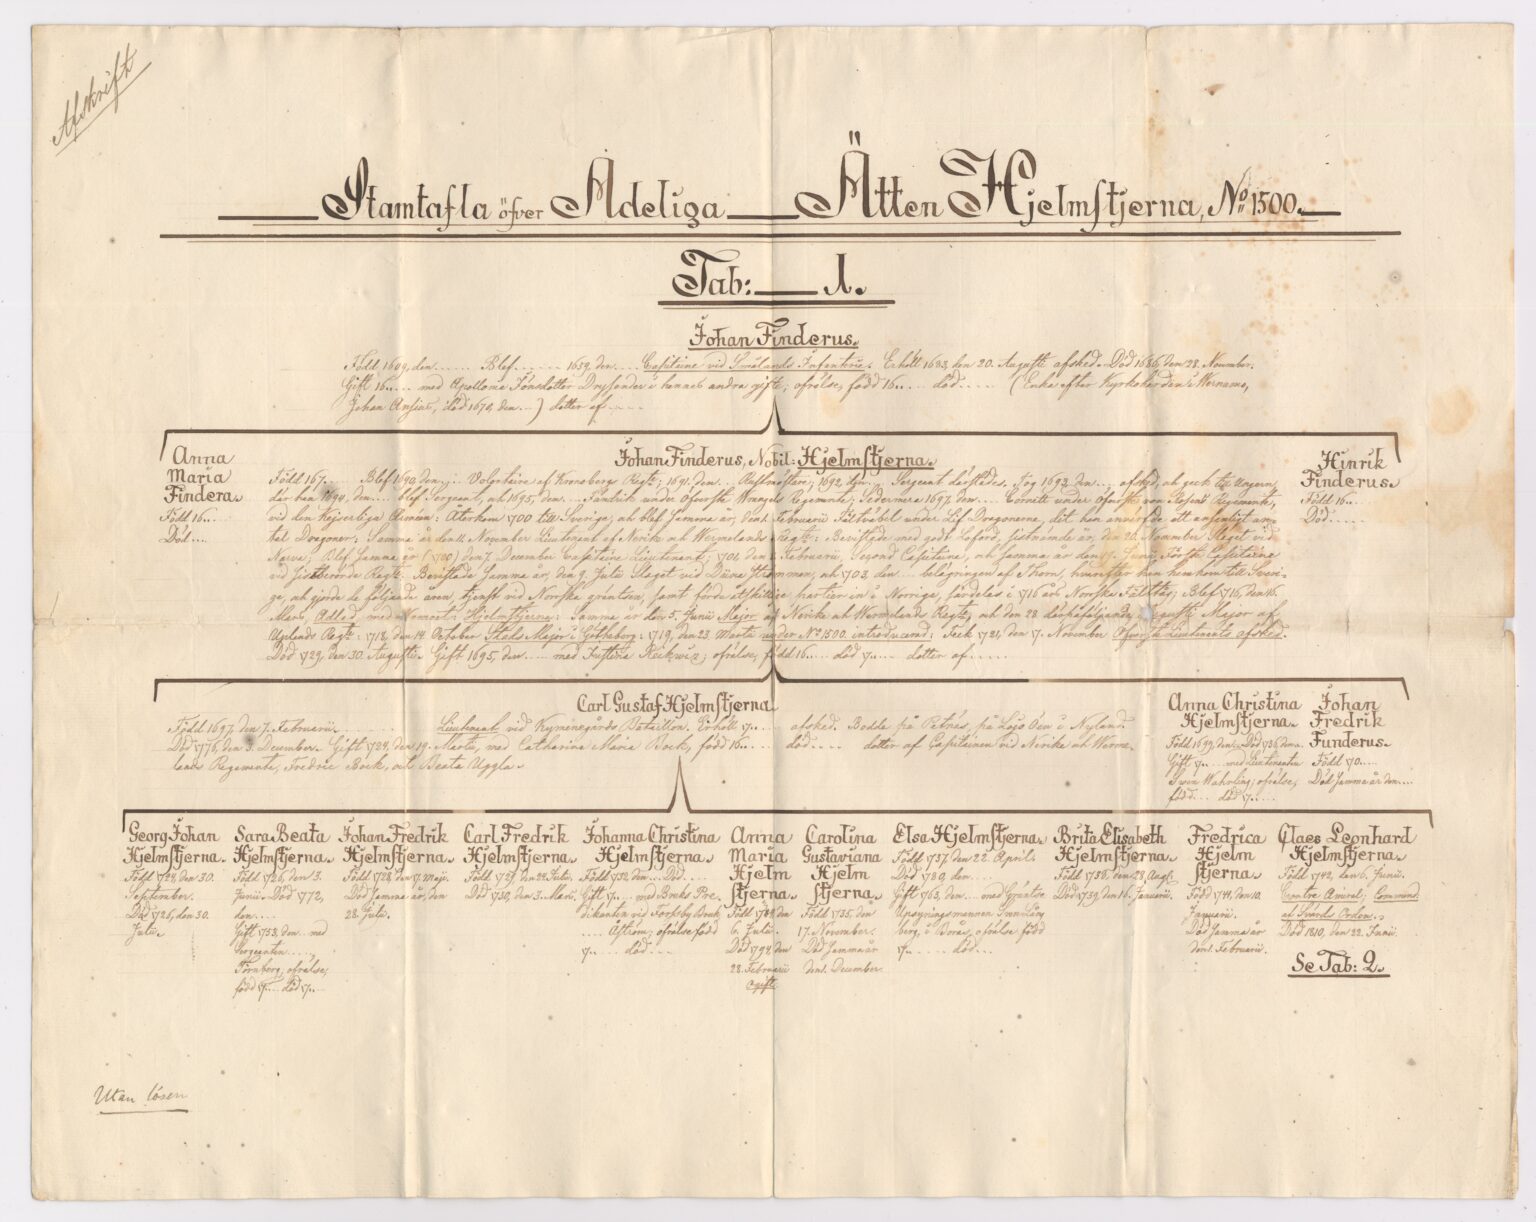 Afskrift
Stamtafla öfver Adeliga Ätten Hjelmstjerna, No 1500.
Tab: 1.
Johan Finderus.
Född 1609, den ...... Blef ...... 1659, den .... Capitaine vid Smålands Infanterie. Erhölt 1683, den 20. Augusti afsked. Död 1686, den 28. November.
Gift 16.... med Apollonia Jönsdotter Drysander i hennes andra gifte; ofrälse, född 16.... död ...... (Enka efter Kyrkoherden i Wernamo,
Johan Ausius, död 1675, den ...) dotter af .....
Anna
Maria
Findera.
Född 16...
Död ....
Johan Finderus, Nobil: Hjelmstjerna.
Född 167.. Blef 1690, den ... Volontaire af Kronobergs Regte; 1691, den ... 1692, den ... Sergeant därstädes. Tog 1693, den ... afsked, och geck til Ungern,
där han 1694, den ... blef Sergeant, och 1695, den ... Fändrik under Öfverste Wrangels Regemente; Sedermera 1697, den .... Cornett under Öfverste von Regemente,
vid den Kejserliga Arméen: Återkom 1700 till Sverige, och blef samma år, den 1. Februarii Fältväbel under Lif Dragonerne, dit han anvärfde ett ansenligt an-
tal Dragoner: Samma år den 11. November Lieutenant af Nerike och Wermelands Regte: Bevistade med godt loford, sistnämde år, den 20. November Slaget vid
Narva; Blef samma år (1700) den 7. December Capitaine Lieutenant; 1701, den Februarii, Second Capitaine, och samma år den 19. Junii Förste Capitaine
vid sistberörde Regte. Bevistade samma år, den 9. Julii Slaget vid Düna Strömmen, och 1703, den .... belägringen af Thorn, hvarefter han hemkom till Sveri-
ge, och gjorde de följande åren, tjenst vid Norska gräntsen, samt förde åtskillige partier in i Norrige, särdeles i 1716 års Norska Fälttåg; Blef 1716, den 16.
Mars, Adlad med Namnet: Hjelmstjerna: Samma år den 5. Junii Major af Nerike och Wermelands Regte, och den 28 därpåföljande Augusti, Major af
Uplands Regte: 1718, den 14. October Stads Major i Götheborg: 1719, den 23. Martii under No 1500. introducerad: Feck 1721, den 17. November Öfverste Lieutenants afsked.
Död 1729, den 30. Augusti. Gift 1695, den .... med Justina Reckwix; ofrälse, född 16.... död 17.... dotter af .....
Hinrik
Finderus.
Född 16...
Död ......
Carl Gustaf Hjelmstjerna.
Född 1697, den 7. Februarii. Lieutenant vid Kymenegårds Bataillon. Erhölt 17.... afsked. Bodde på Petnäs, på Lojo Öen i Nyland.
Död 1776, den 3. December. Gift 1724, den 19. Martii, med Catharina Maria Bock, född 16.... död ..... dotter af Capitainen vid Nerike och Werme-
lands Regemente, Fredric Bock, och Beata Uggla.
Anna Christina
Hjelmstjerna.
Född 1699, den . Död 1736, den ..
Gift 17.... med Lieutenanten
Sven Wahrling; ofrälse,
född .... död 17....
Johan
Fredrik
Funderus.
Född 170....
Död samma år den ....
Georg Johan
Hjelmstjerna.
Född 1724, den 30.
September.
Död 1725, den 30.
Julii.
Sara Beata
Hjelmstjerna.
Född 1726, den 3.
Junii. Död 1772,
den ....
Gift 1753, den ... med
Sergeanten ....
Törnberg, ofrälse,
född 17... död 17...
Johan Fredrik
Hjelmstjerna.
Född 1728, den 17. Maji.
Död samma år, den
28. Julii.
Carl Fredrik
Hjelmstjerna.
Född 1729, den 24. Julii.
Död 1730, den 3. Mars.
Johanna Christina
Hjelmstjerna.
Född 1732, den .... Död ....
Gift 17... med Bruks Pre-
dikanten vid Forssby Bruk
.... Åström; ofrälse, född
17... död ....
Anna
Maria
Hjelm
stjerna.
Född 1734, den
6. Julii.
Död 1794, den
28. Februarii
ogift
Carolina
Gustaviana
Hjelm
stjerna.
Född 1735, den
17. November.
Död samma år
den 1. December.
Elsa Hjelmstjerna.
Född 1737, den 22. April.
Död 1780, den ....
Gift 1763, den .... med Gränse
Upsyningsmannen Sven Ljung
berg, i Borås, ofrälse, född
17.... död ...
Brita Elisabeth
Hjelmstjerna.
Född 1738, den 28. Aug.
Död 1739, den 16. Januarii.
Fredrica
Hjelm
stjerna.
Född 1741, den 10.
Januarii.
Död samma år
den 1. Februarii.
Claes Leonhard
Hjelmstjerna.
Född 1742, den 6. Junii.
Contre Amiral; Commend.
af Svärds Orden.
Död 1810, den 22. Junii.
Se Tab: 2.
Utan lösen